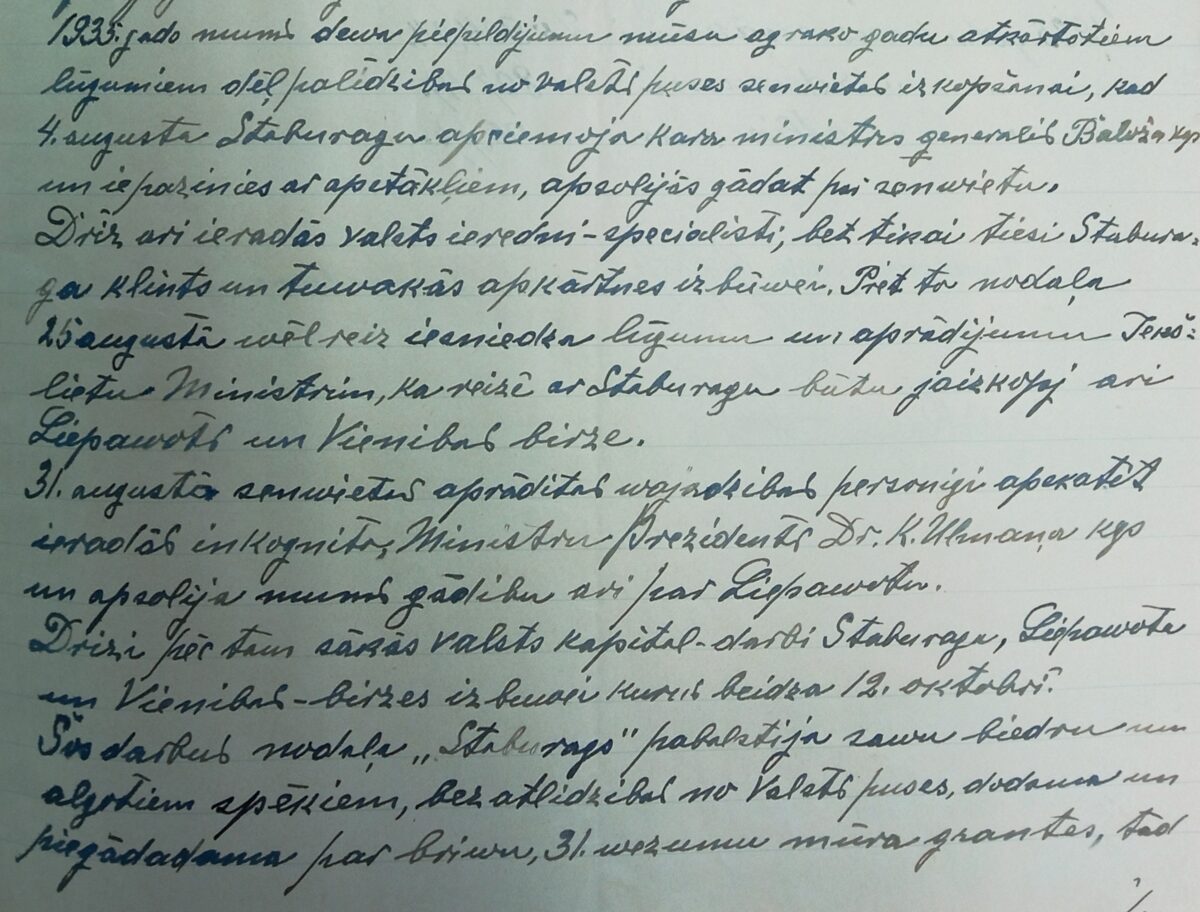 1935. gads mums dewa piepildijumu mūsu agrako gadu atkārtotiem
lūgumiem dēļ palidzibas no valsts puses senwietas izkopšanai, kad
4. augusta Staburagu apciemoja kara ministrs generalis Baloža kgs
un iepazinies ar apstākļiem, apsolijās gādat par senwietu.
Driz ari ieradās valsts ieredni-specialisti, bet tikai tieši Stabura-
ga klints un tuwakās apkārtnes izbūwei. Pret to nodaļa
25 augustā wēlreiz iesniedza lūgumu un aprādijumu Iekš-
lietu Ministrim, ka reizē ar Staburagu būtu jaizkopj ari
Liepawots un Vienibas birze.
31. augustā senwietas aprāditas wajadzibas personigi apskatit
ieradās inkognito, Ministru Prezidents Dr. K. Ulmaņa kgs
un apsolija mums gādibu ari par Liepawotu.
Drizi pēc tam sākās valsts kapital-darbi Staburaga, Liepawota
un Vienibas-birzes izbuwei kurus beidza 12. oktobrī.
Šos darbus nodaļa „Staburags" pabalstija sawu biedru un
algotiem spēkiem, bez atlidzibas no Valsts puses, dodama un
piegādadama par briwu, 31. wezumu mūra grantes, tad